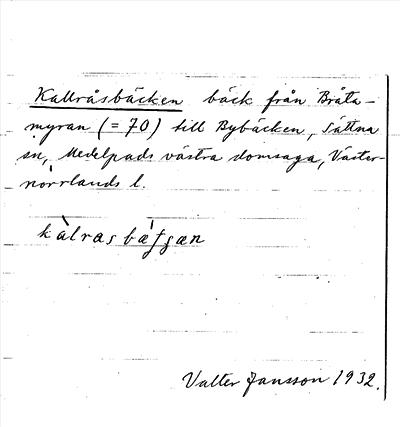 Kallråsbäcken bäck från Bråta-
myran (= 70) till Bybäcken, Sättna
sn, Medelpads västra domsaga, Väster-
norrlands l.
kàlrasbæ̀ʃgæn
Valter Jansson 1932.